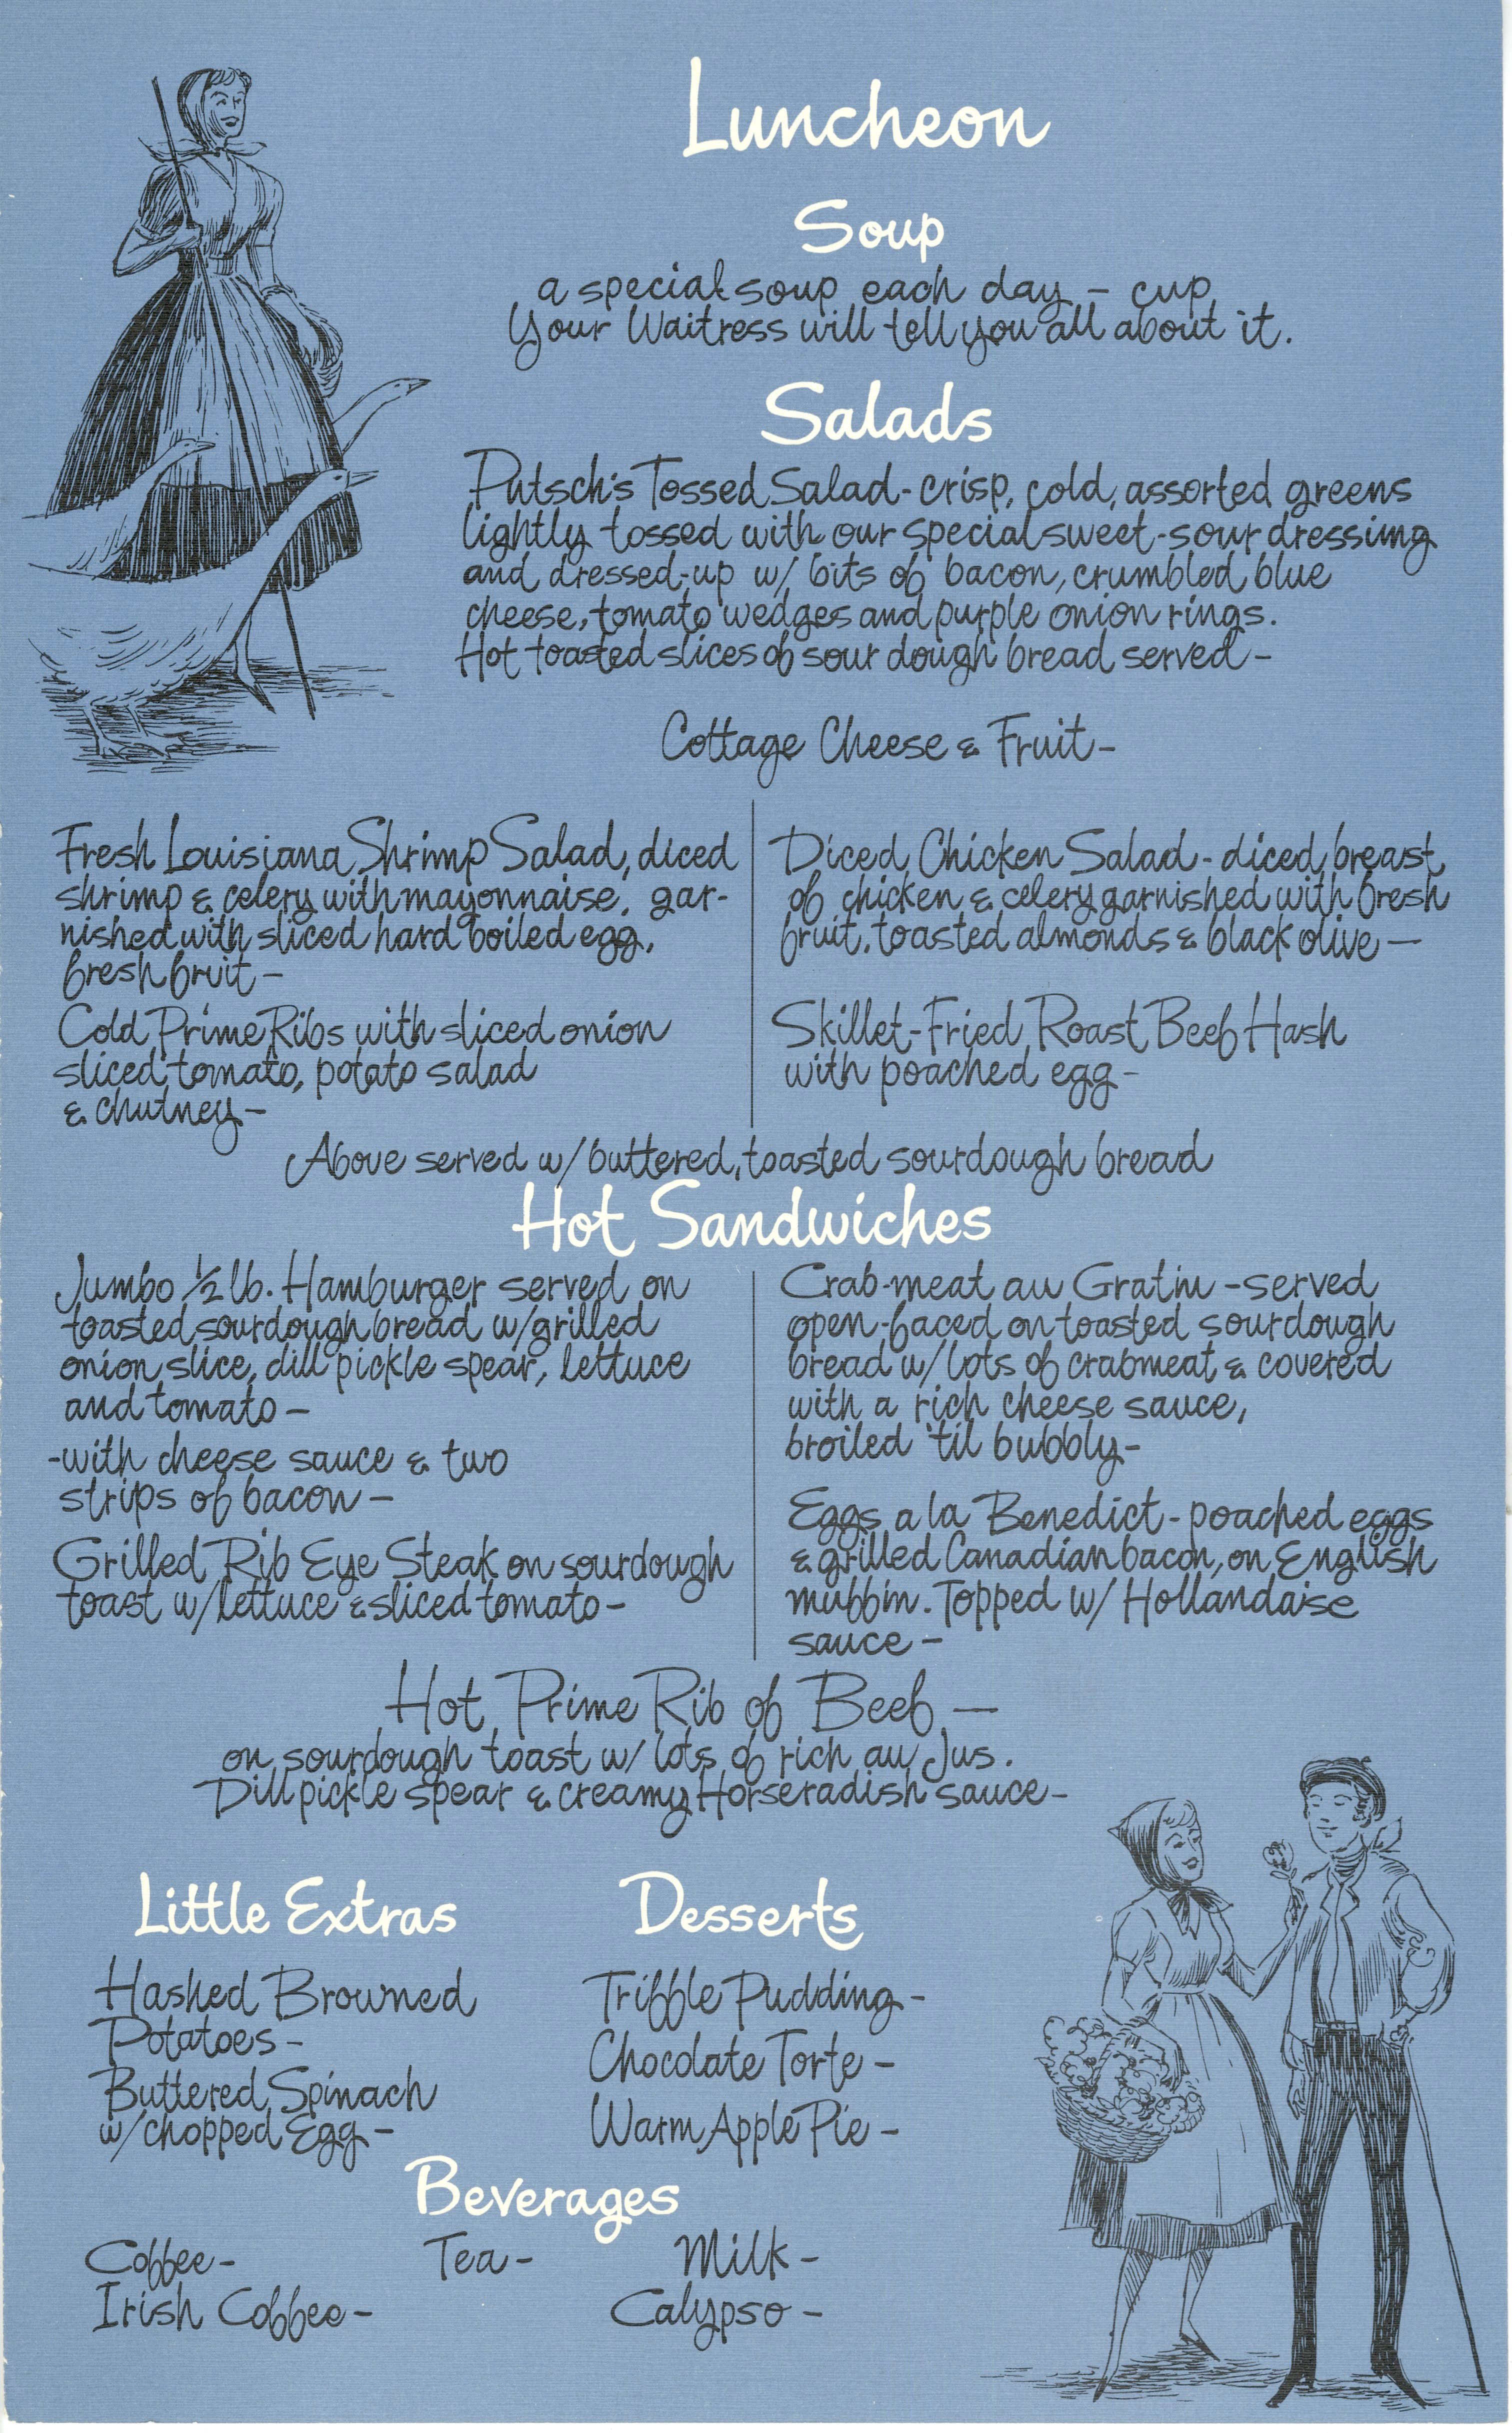 Luncheon
Soup
a special soup each day - cup
Your Waitress will tell you all about it.
Salads
Putsch's Tossed Salad - crisp, cold, assorted greens
lightly tossed with our special sweet-sour dressing
and dressed-up w/ bits of bacon, crumbled blue
cheese, tomato wedges and purple onion rings.
Hot toasted slices of sour dough bread served -
Cottage Cheese & Fruit -
Fresh Louisiana Shrimp Salad, diced
shrimp & celery with mayonnaise, gar-
nished with sliced hard boiled egg,
fresh fruit -
Cold Prime Ribs with sliced onion
sliced tomato, potato salad
& chutney -
Diced Chicken Salad - diced breast
of chicken & celery garnished with fresh
fruit, toasted almonds & black olive -
Skillet-Fried Roast Beef Hash
with poached egg -
Above served w/ buttered, toasted sourdough bread
Hot Sandwiches
Jumbo ½ lb. Hamburger served on
toasted sourdough bread w/ grilled
onion slice, dill pickle spear, lettuce
and tomato -
- with cheese sauce & two
strips of bacon -
Grilled Rib Eye Steak on sourdough
toast w/ lettuce & sliced tomato -
Crab-meat au Gratin - served
open-faced on toasted sourdough
bread w/ lots of crabmeat & covered
with a rich cheese sauce,
broiled 'til bubbly -
Eggs a la Benedict - poached eggs
& grilled Canadian bacon, on English
muffin. Topped w/ Hollandaise
sauce -
Hot Prime Rib of Beef -
on sourdough toast w/ lots of rich au Jus.
Dill pickle spear & creamy Horseradish sauce -
Little Extras
Hashed Browned
Potatoes -
Buttered Spinach
w/ chopped Egg -
Desserts
Triffle Pudding -
Chocolate Torte -
Warm Apple Pie -
Beverages
Coffee - Tea - Milk -
Irish Coffee - Calypso -